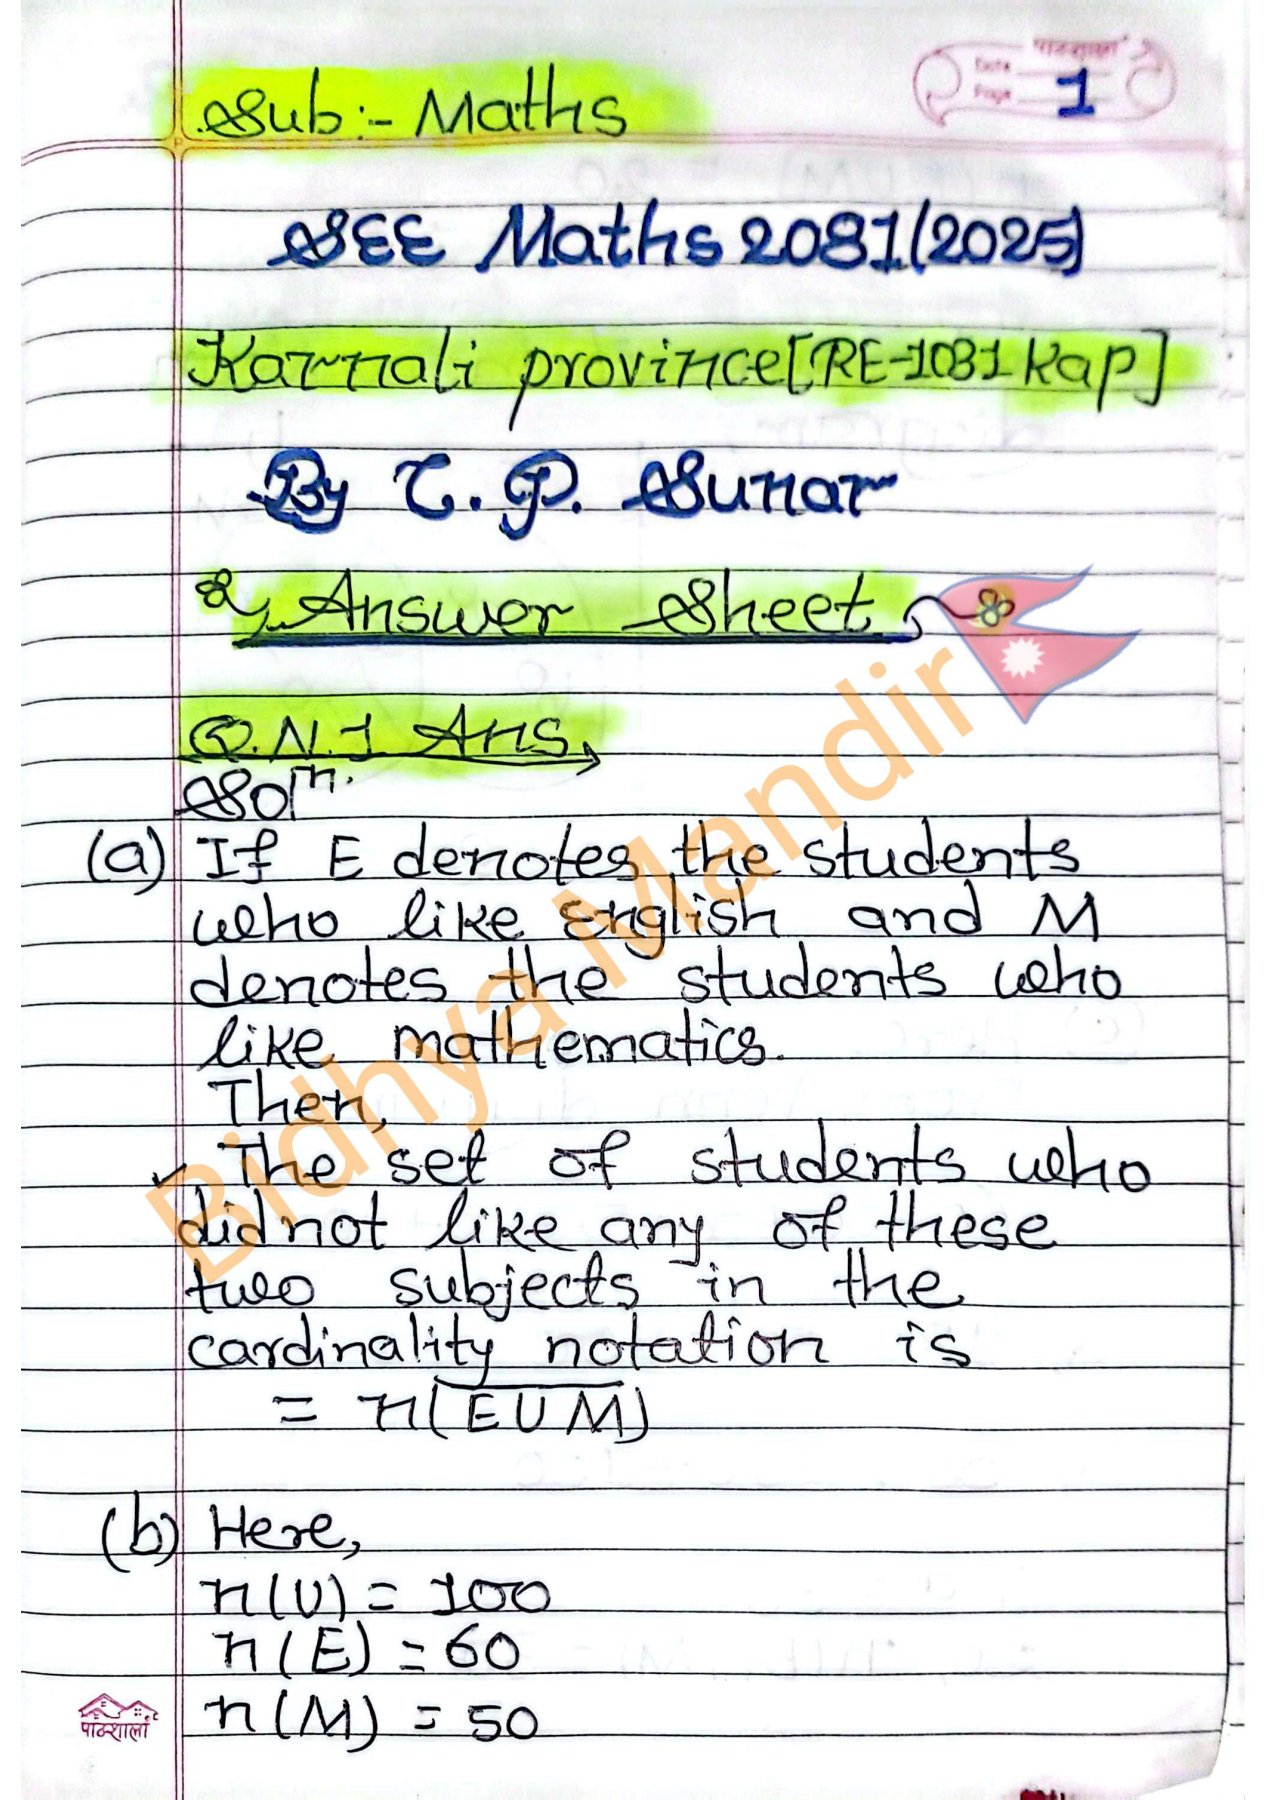 पाठशाला
Date
Page 1
Sub:- Maths
SEE Maths 2081(2025)
Karnali province[RE-1081 Kap]
By T. P. Sunar
Answer Sheet
Q.N.1 Ans
Solⁿ.
(a) If E denotes the students
who like English and M
denotes the students who
like mathematics.
Then,
The set of students who
did not like any of these
two subjects in the
cardinality notation is
= n(E̅ ̅U̅ ̅M̅)
(b) Here,
n(U) = 100
n(E) = 60
n(M) = 50
पाठशाला
Bidhya Mandir